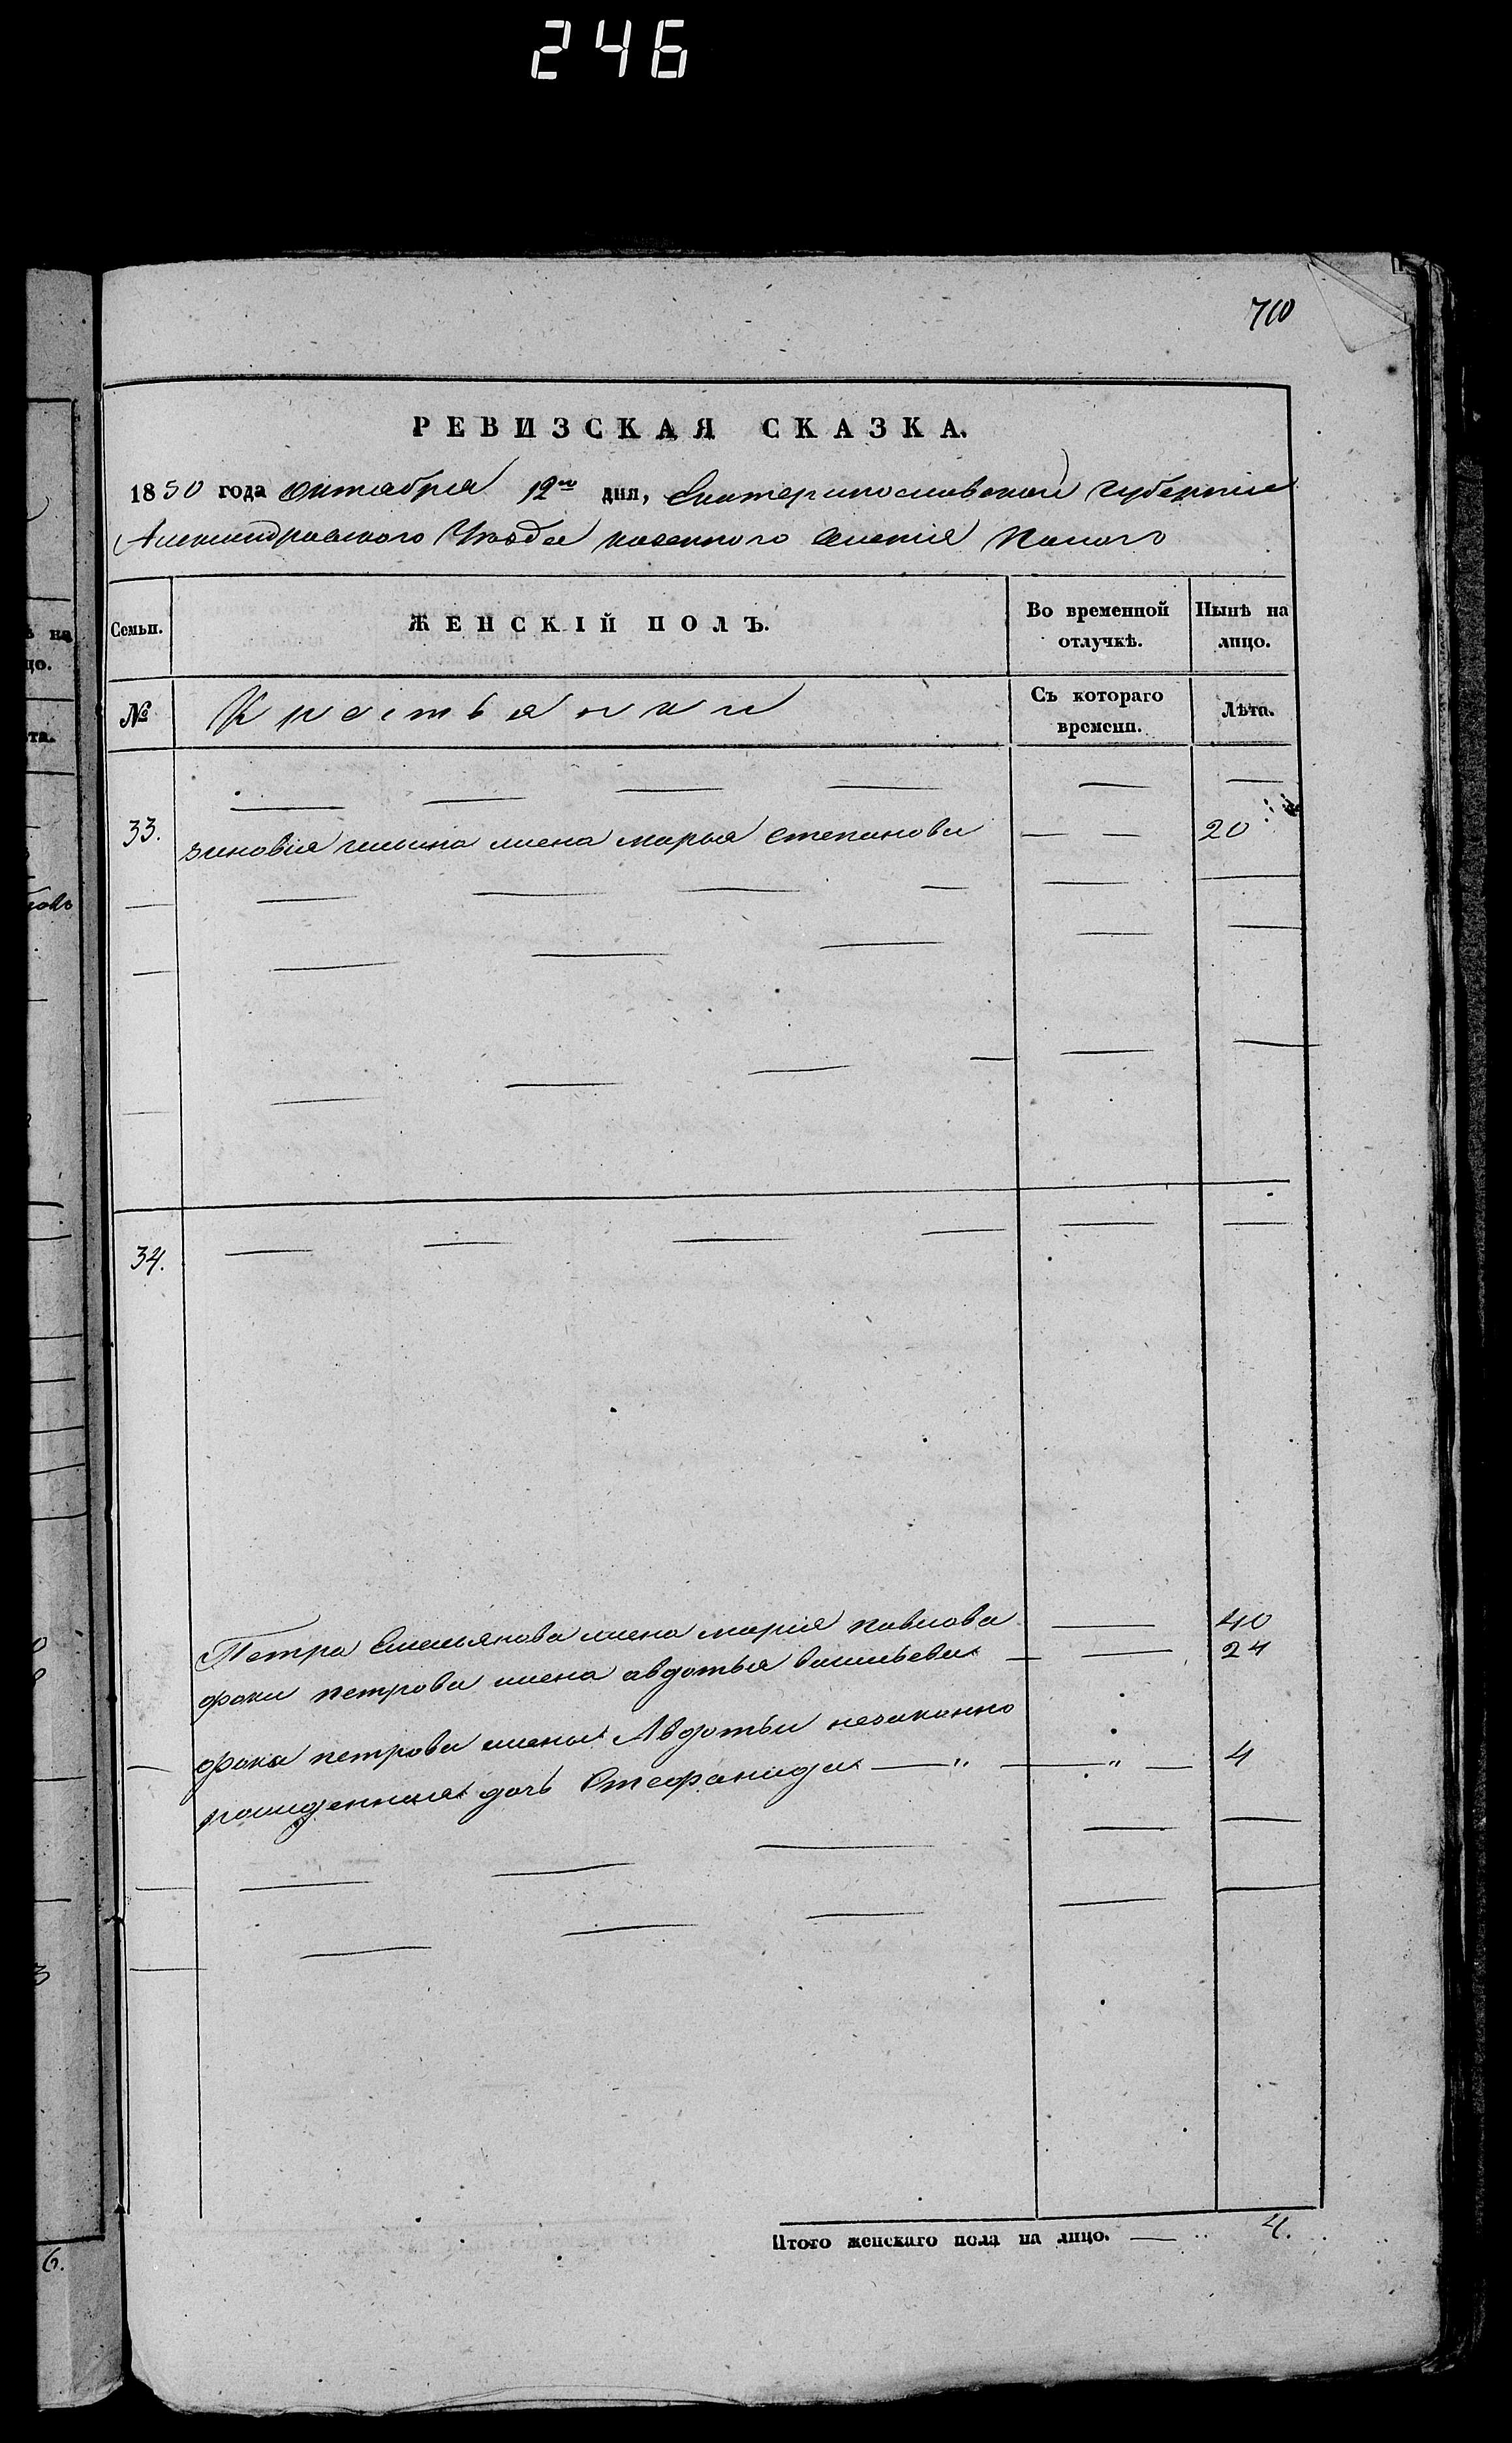 246
710
РЕВИЗСКАЯ СКАЗКА.
1850 года октября 12го дня, Екатеринославской Губернии
Александровского Уѣзда казенного селения
Семьи. ЖЕНСКІЙ ПОЛЪ. Во временной отлучкѣ. Нынѣ на лицо.
№ Крестьянки Съ котораго времени. Лѣта.
33. зиновія ильина жена марья степанова — — 20
34. — — — —
Петра Емельянова жена марія павлова — 40
фоки петрова жена авдотья васильева — — 24
фока петрова жены Авдотьи незаконно
рожденная дочь Стефанида — " — " — 4
Итого женскаго пола на лицо. — 4.
6.